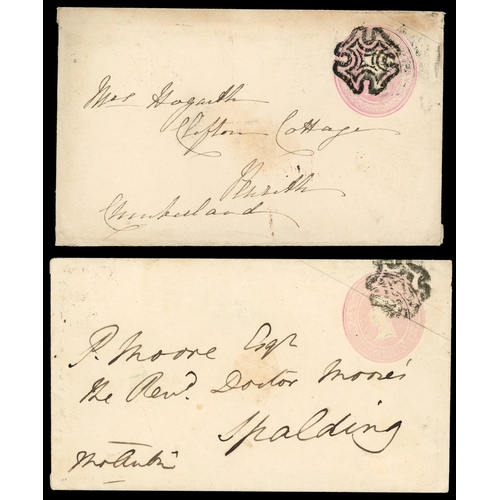 Mrs Hogarth
Clifton Cottage
Penrith
Cumberland
P. Moore Esqr
The Revd. Doctor Moore's
Spalding